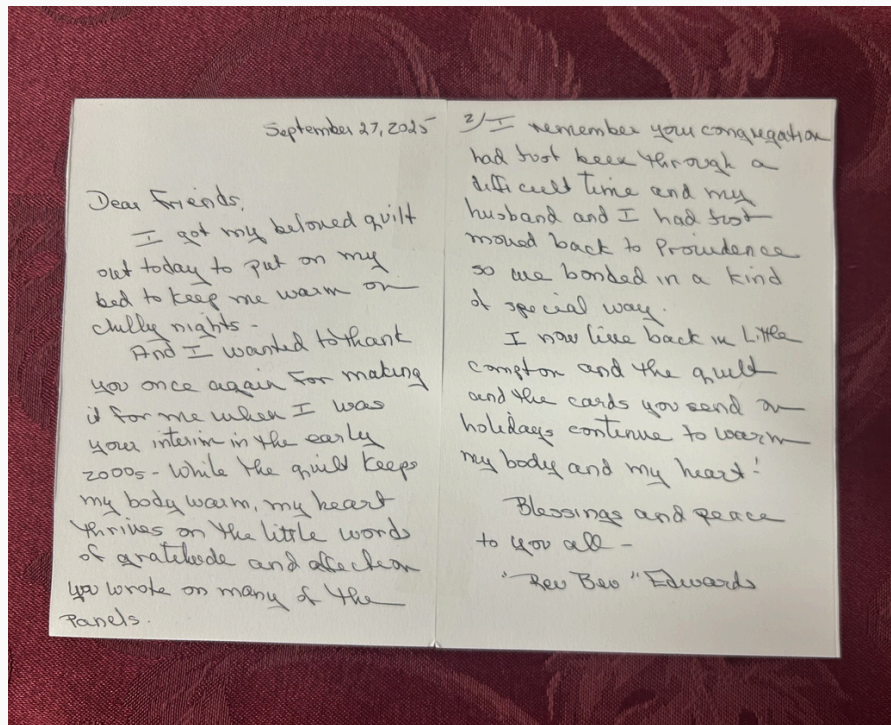 September 27, 2025
Dear Friends,
I got my beloved quilt
out today to put on my
bed to keep me warm on
chilly nights -
And I wanted to thank
you once again for making
it for me when I was
your interim in the early
2000s - While the quilt keeps
my body warm, my heart
thrives on the little words
of gratitude and affection
you wrote on many of the
panels.
2/ I remember your congregation
had just been through a
difficult time and my
husband and I had just
moved back to Providence
so we bonded in a kind
of special way.
I now live back in Little
Compton and the quilt
and the cards you send on
holidays continue to warm
my body and my heart!
Blessings and peace
to you all -
"Rev Bev" Edwards